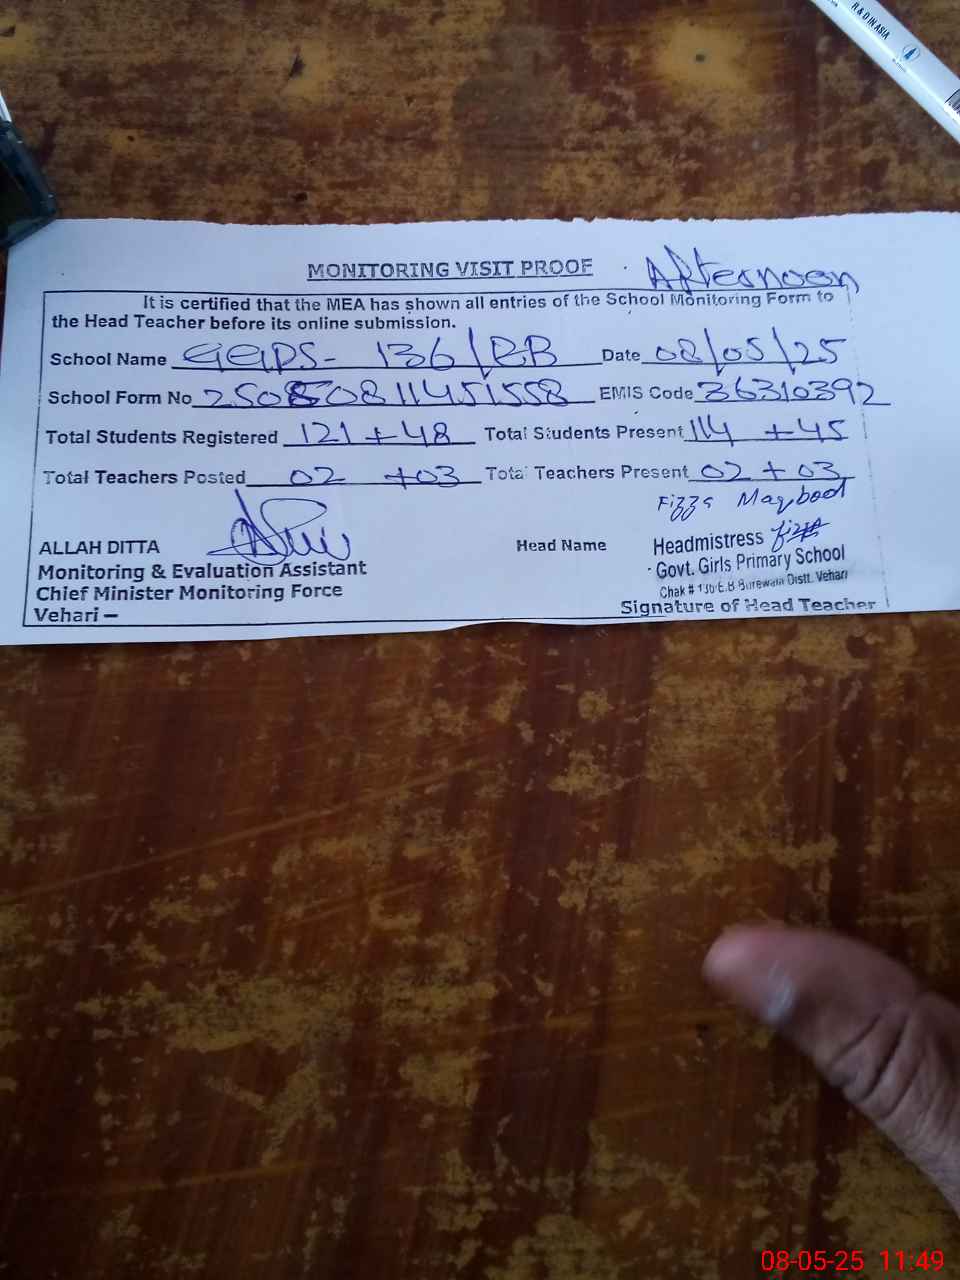 R & D IN ASIA
MONITORING VISIT PROOF
Afternoon
It is certified that the MEA has shown all entries of the School Monitoring Form to
the Head Teacher before its online submission.
School Name GGPS- 136/EB Date 08/05/25
School Form No 250850811451558 EMIS Code 36310392
Total Students Registered 121 + 48 Total Students Present 114 + 45
Total Teachers Posted 02 +03 Total Teachers Present 02 + 03
Fizza Maqbool
ALLAH DITTA Head Name Headmistress
Monitoring & Evaluation Assistant Govt. Girls Primary School
Chief Minister Monitoring Force Chak # 136 E.B Burewala Distt. Vehari
Vehari – Signature of Head Teacher
08-05-25 11:49